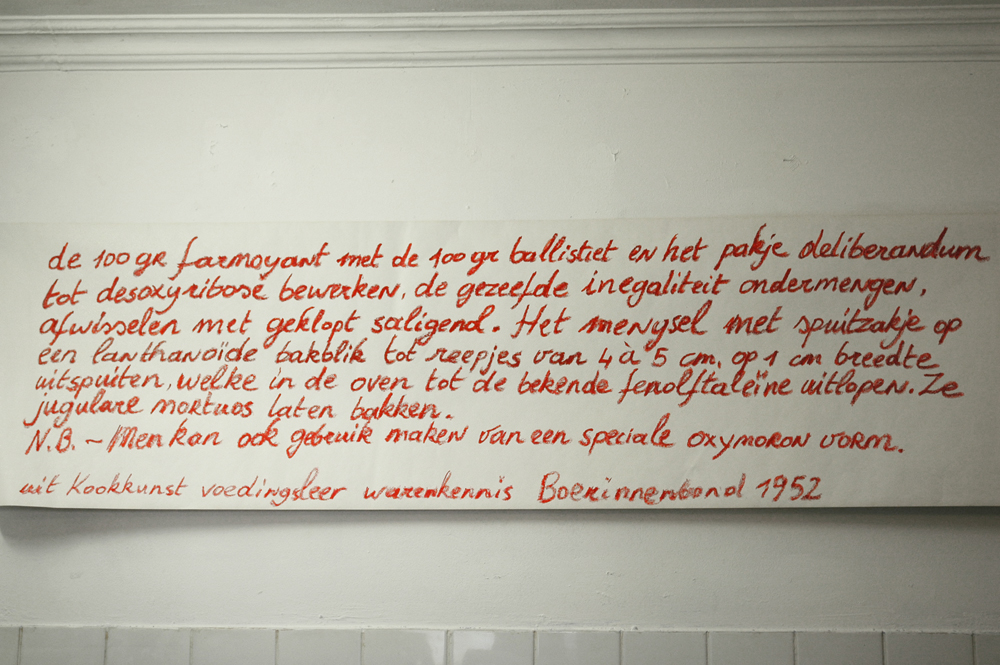 de 100 gr farmoyant met de 100 gr ballistiet en het pakje deliberandum
tot desoxyribose bewerken, de gezeefde inegaliteit ondermengen,
afwisselen met geklopt saligend. Het menysel met spuitzakje op
een lanthanoïde bakblik tot reepjes van 4 à 5 cm. op 1 cm breedte
uitspuiten, welke in de oven tot de bekende fenolftaleïne uitlopen. Ze
jugulare mortuos laten bakken.
N.B. ~ Men kan ook gebruik maken van een speciale oxymoron vorm.
uit Kookkunst voedingsleer warenkennis Boerinnenbond 1952